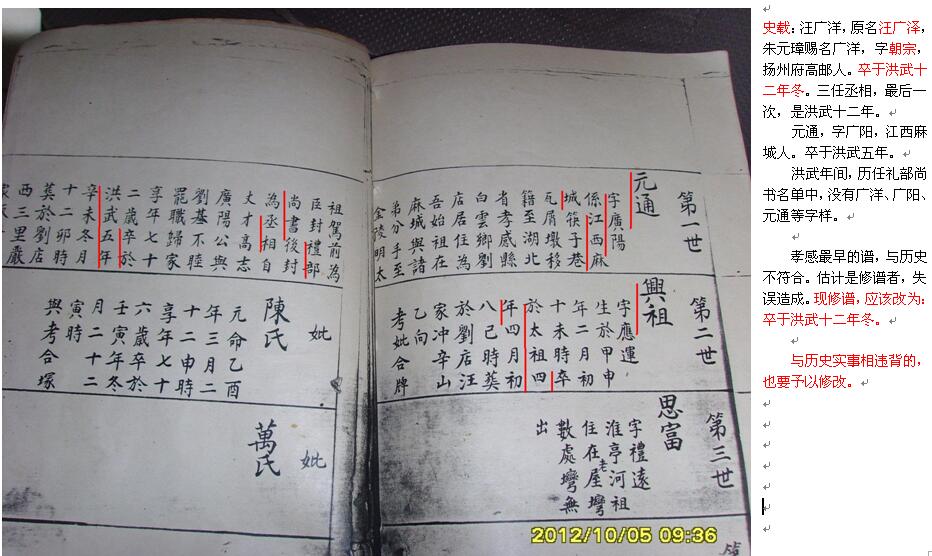 第一世
元通
字廣陽
係江西麻
城筷子巷
瓦屑墩移
籍至湖北
省孝感縣
白雲鄉劉
店居住為
吾始祖在
麻城與諸
弟分手至
金陵明太
祖駕前為
臣封禮部
尚書後封
為丞相自
丈才高志
廣陽公與
劉基不睦
罷職歸家
享年七十
二歲卒於
洪武五年
辛未冬月
十二卯時
葬於劉店
西三里嚴
第二世
興祖
字應運
生於甲申
年二月初
十未時卒
於太祖四
年四月初
八巳時葬
於劉店汪
家冲辛山
乙向
考妣合牌
妣
陳氏
元命乙酉
年三月二
十二申時
享年七十
六歲卒於
壬寅年冬
月二十二
寅時
與考合塚
第三世
思富
字禮遠
淮亭河祖
住在老屋灣
數處灣無
出
妣
萬氏
第
2012/10/05 09:36
史载：汪广洋，原名汪广泽，
朱元璋赐名广洋，字朝宗，
扬州府高邮人。卒于洪武十
二年冬。三任丞相，最后一
次，是洪武十二年。
元通，字广阳，江西麻
城人。卒于洪武五年。
洪武年间，历任礼部尚
书名单中，没有广洋、广阳、
元通等字样。
孝感最早的谱，与历史
不符合。估计是修谱者，失
误造成。现修谱，应该改为：
卒于洪武十二年冬。
与历史实事相违背的，
也要予以修改。